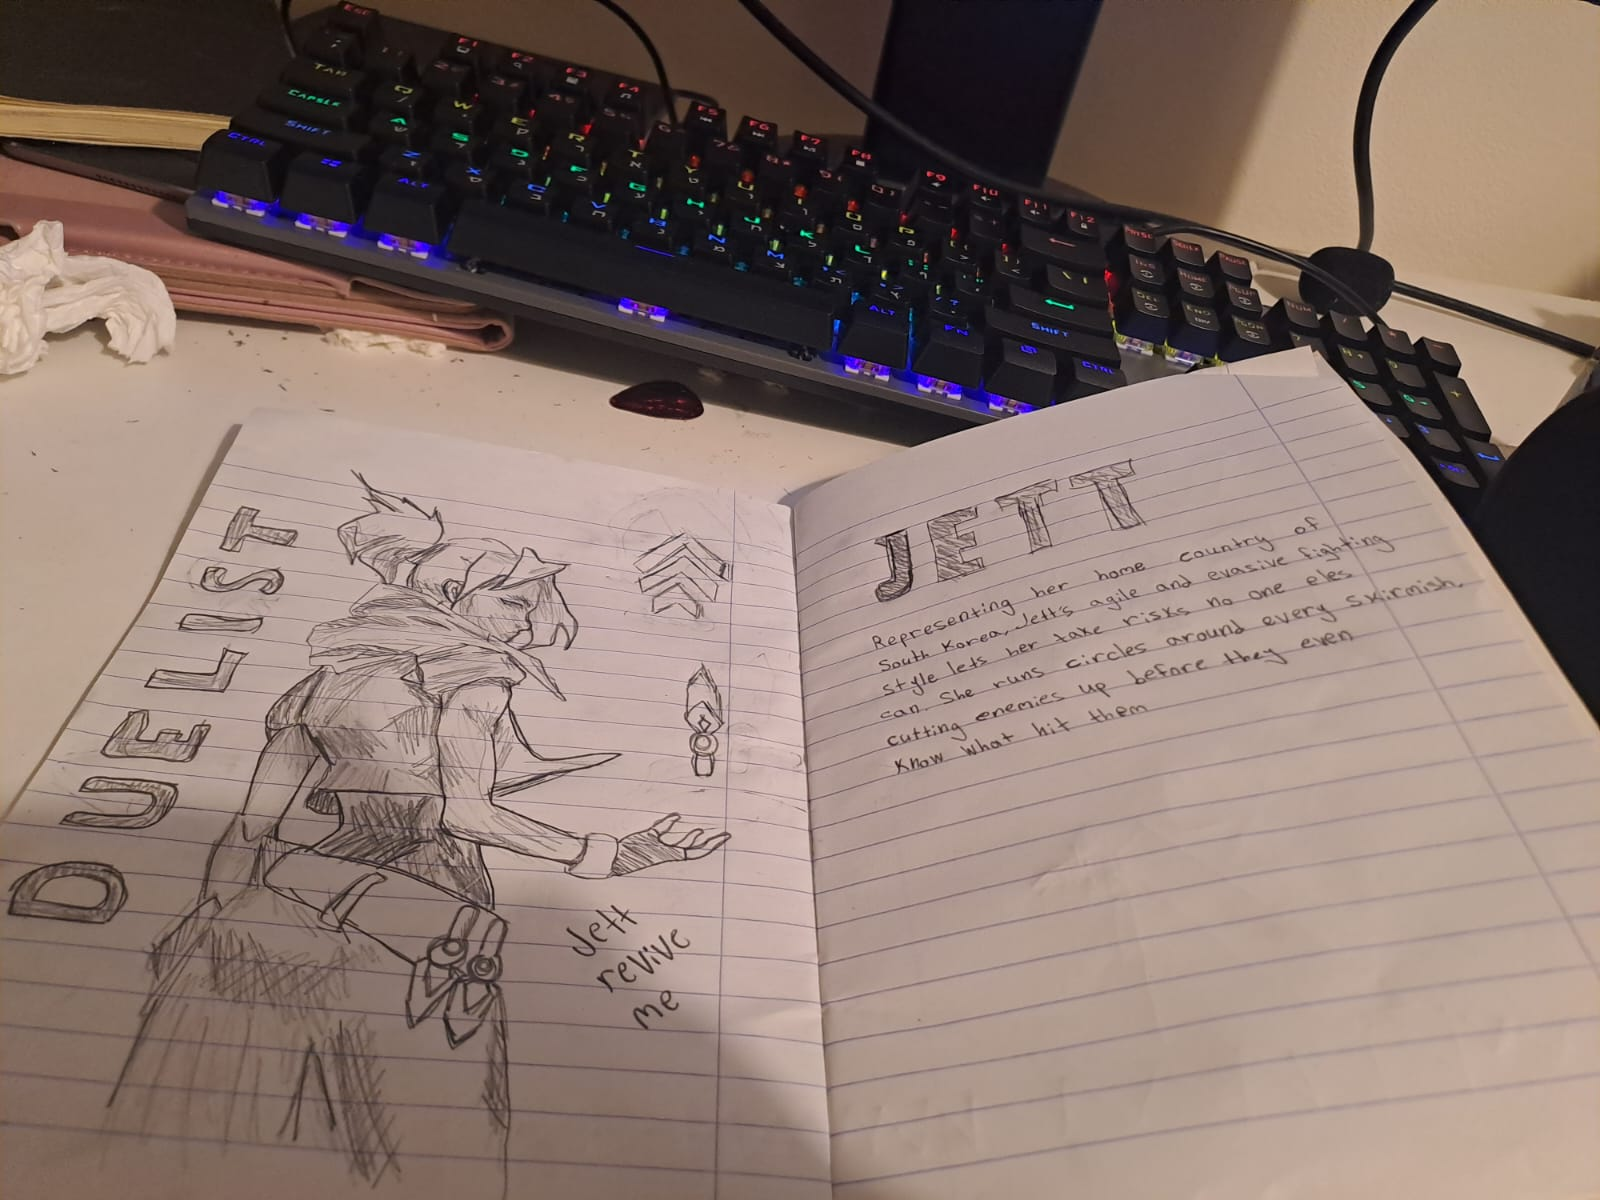 ESC
F1 F2 F3 F4 F5 F6 F7 F8 F9 F10 F11 F12
TAB Q W E R T Y U
CAPSLK A S D F G H J K L
SHIFT Z X C V B N M SHIFT
CTRL ALT ALT FN CTRL
DUELIST
Jett
revive
me
JETT
Representing her home country of
South Korea, Jett's agile and evasive fighting
style lets her take risks no one eles
can. She runs circles around every skirmish,
cutting enemies up before they even
know what hit them